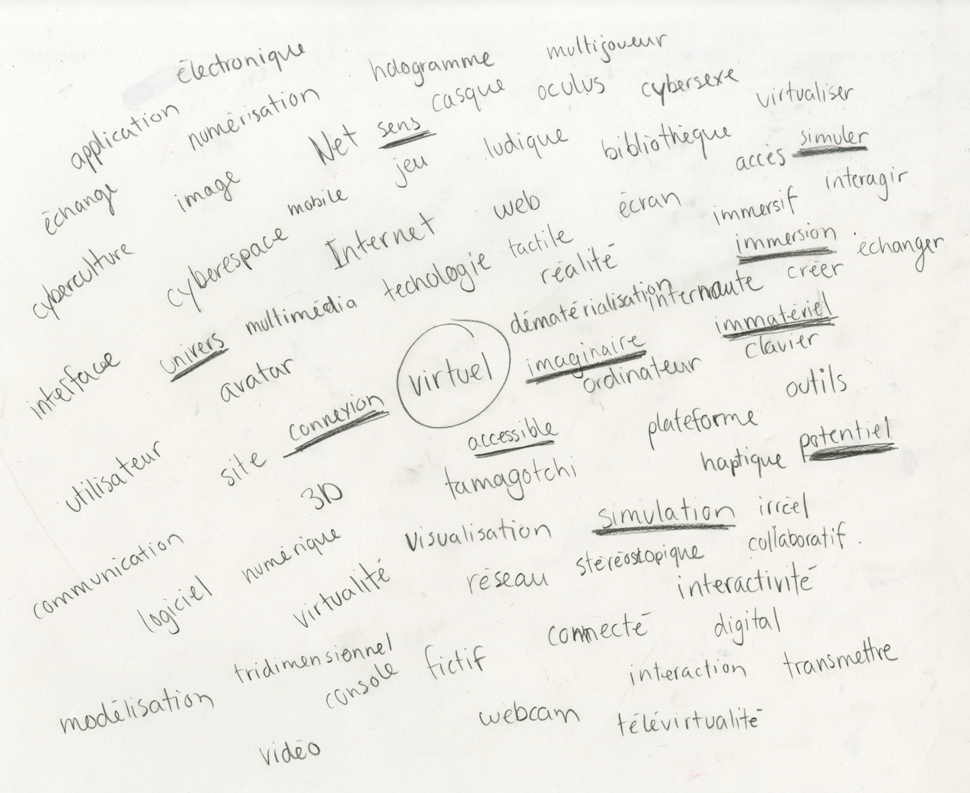 électronique
hologramme
multijoueur
application
numérisation
casque
oculus
cybersexe
virtualiser
Net
sens
échange
image
jeu
ludique
bibliothèque
accès
simuler
mobile
interagir
cyberculture
cyberespace
Internet
web
écran
immersif
tactile
immersion
échanger
multimédia
techologie
réalité
créer
interface
univers
dématérialisation
internaute
immatériel
avatar
virtuel
imaginaire
clavier
ordinateur
outils
connexion
utilisateur
site
accessible
plateforme
potentiel
3D
tamagotchi
haptique
communication
numérique
visualisation
simulation
irréel
logiciel
virtualité
réseau
stéréostopique
collaboratif.
interactivité
tridimensionnel
connecté
digital
modélisation
console
fictif
interaction
transmettre
vidéo
webcam
télévirtualité